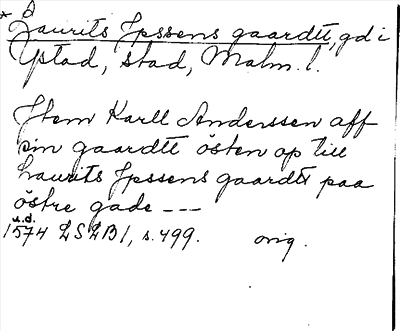 * Laurits Jpssens gaardtt, gd i
Ystad, stad, Malm. l.
Jtem Karll Anderssen aff
sin gaardtt östen op till
Laurits Jpssens gaardtt paa
östre gade ---
u.d.
1574 LSLB1, s. 499. orig.